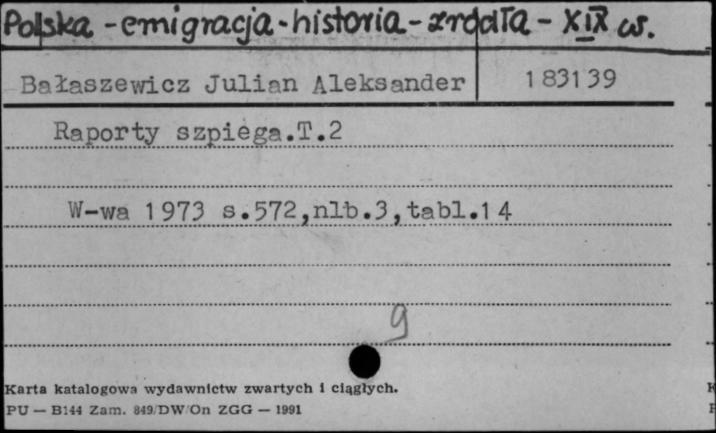 Polska - emigracja - historia - źródła - XIX w.
Bałaszewicz Julian Aleksander 183139
Raporty szpiega.T.2
W-wa 1973 s.572,nlb.3,tabl.14
9
Karta katalogowa wydawnictw zwartych i ciągłych.
PU — B144 Zam. 849/DW/On ZGG — 1991